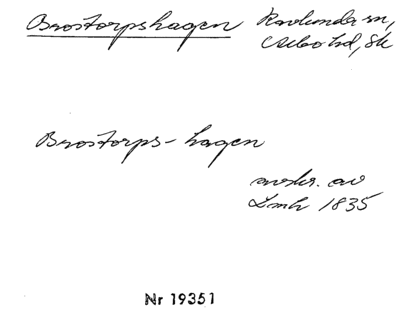 Brostorpshagen Ravlunda sn,
Albo hd, Sk
Brostorps-hagen
avskr. av
Lmh 1835
Nr 19351